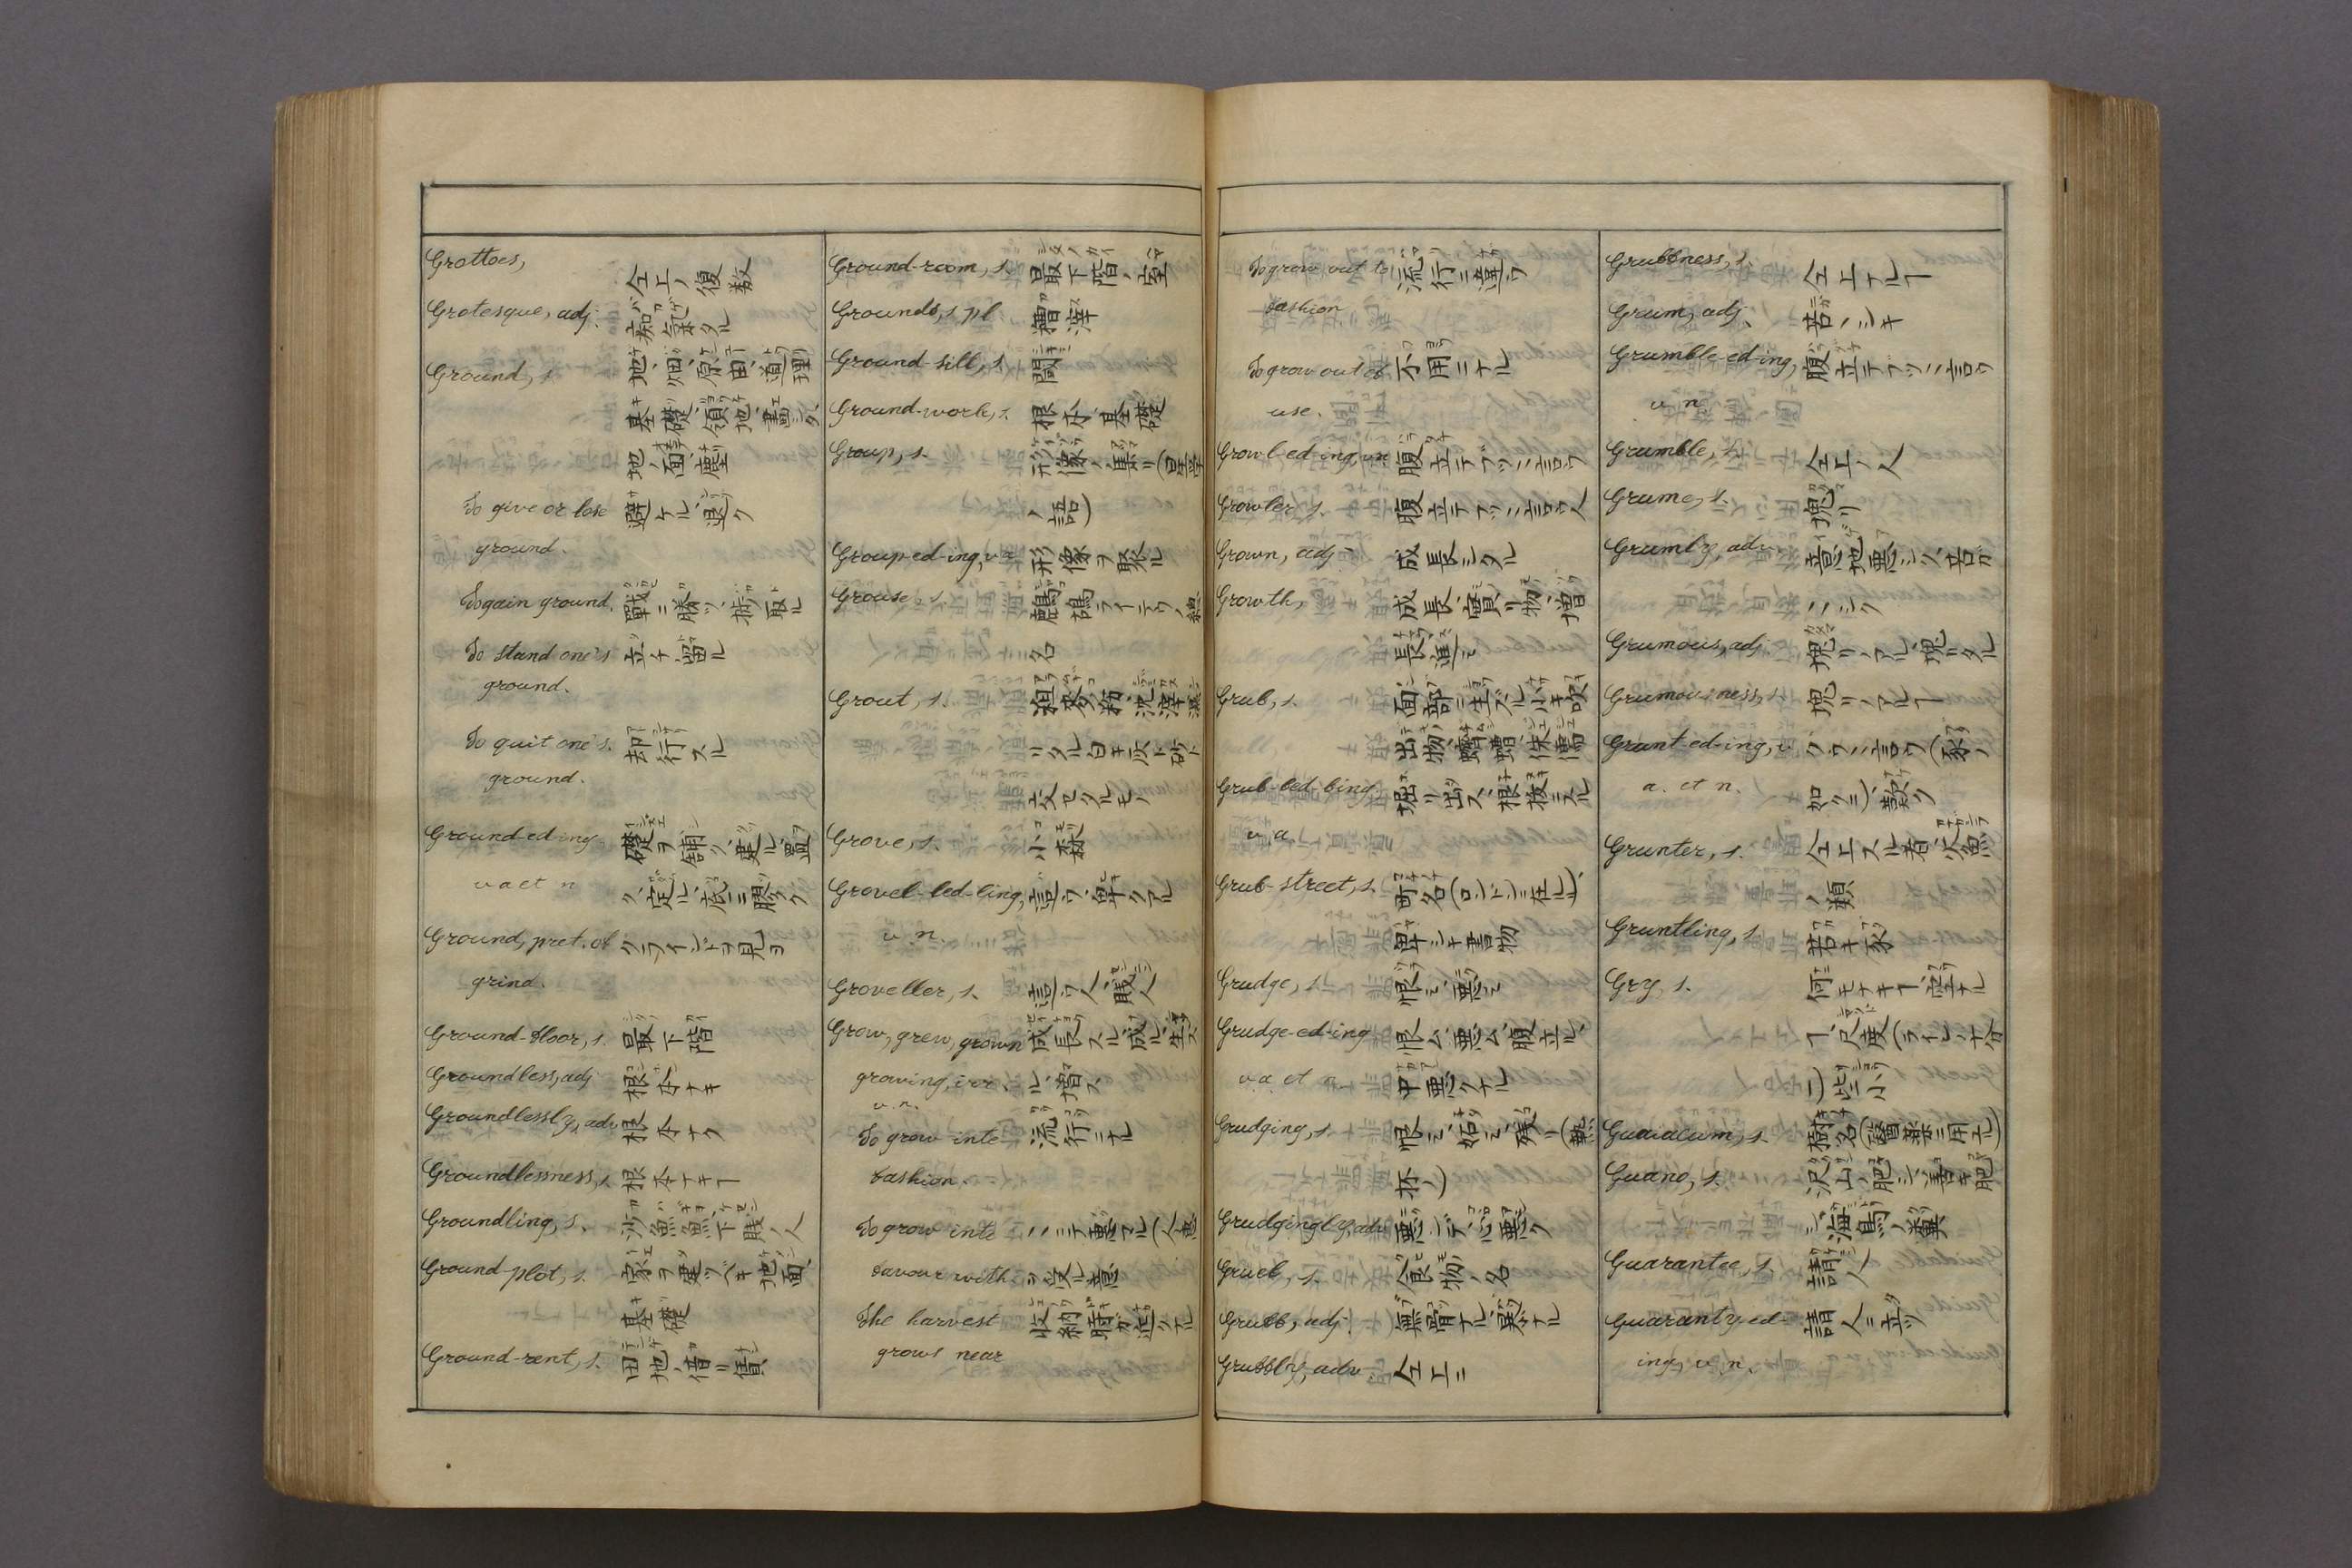 Grottoes, 仝上ノ復数
Grotesque, adj. 痴氣タル
Ground, s. 地、畑、原由、道理
基礎、領地、畵
地ノ面、塵
To give or lose 避ケル、退ク
ground.
To gain ground. 戰ニ勝ツ、捗取ル
To stand one's 立チ留ル
ground.
To quit one's 却行スル
ground.
Ground-ed-ing 礎ヲ鋪ク、建ル、置
v a et n ク、定ル、底ニ膠ク
Ground, pret. of グラインドヲ見ヨ
grind.
Ground-floor, s. 最下階
Groundless, adj 根本ナキ
Groundlessly, adv 根本ナク
Groundlessness, s. 根本ナキヿ
Groundling, s. 魚、下賤ノ人
Ground-plot, s. 家ヲ建ツベキ地面、
基礎
Ground-rent, s. 田地ノ借リ賃
Ground-room, s. 最下階ノ室
Grounds, s. pl 糟滓
Ground-sill, s. 閾
Ground-work, s. 根本、基礎
Group, s. 形像ノ集リ(星学
ノ語)
Group-ed-ing, v a 形像ヲ聚ル
Grouse, s.
名
Grout, s. 粗麥粉、沈滓
リタル白キ灰ト砂ト
交セタルモノ
Grove, s. 小森
Grovel-led-ling, 這ウ、卑クアル
v. n.
Groveller, s. 這ウ人、賤人
Grow, grew, grown 成長スル、成ル、生ス
growing, irr. ル、増ス
v. n.
To grow into 流行ニナル
fashion.
To grow into
favour with.
The harvest 收納時ガ近クナル
grows near
To grow out to 流行ニ違ウ
fashion
To grow out of 不用ニナル
use.
Growl-ed-ing, v n 腹立テブツ〳〵言ウ
Growler, s. 腹立テブツ〳〵言ウ人
Grown, adj. 成長シタル
Growth, 成長、實リ物、増
長、進ミ
Grub, s. 面部ニ生ズル小キ吹
出物、蠐螬、侏儒
Grub-bed-bing 堀リ出ス、根抜ニスル
v. a
Grub-street, s. 町名(ロンドンニ在ル)、
卑シキ書物
Grudge, s. 恨ミ、悪ミ
Grudge-ed-ing 恨ム、悪ム、腹立ル、
v. a et n. 中悪クナル
Grudging, s. 恨ミ、妬ミ、残リ(熱
抔ノ)
Grudgingly, adv. 悪ンデ、心悪ク
Gruel, s. 食物ノ名
Gruff, adj.
Gruffly, adv. 仝上ニ
Gruffness, s. 仝上ナルヿ
Grum, adj. 苦〳〵シキ
Grumble-ed-ing, 腹立テブツ〳〵言ウ
v. n
Grumble, s. 仝上ノ人
Grume, s. 塊リ
Grumly, adv. 意地悪シク、苦ガ
〳〵シク
Grumous, adj. 塊リノアル、塊リタル
Grumousness, s. 塊リノアルヿ
Grunt-ed-ing, v. グウ〳〵言ウ(豕ノ
a. et n. 如クニ)、歎ク
Grunter, s. 仝上スル者、
ノ類
Gruntling, s. 若キ豕
Gry, s. 何モナキヿ、空ナル
ヿ、尺度
些小
Guaiacum, s. 樹名(醫薬ニ用エル)
Guano, s. 沢山ノ肥シ、善キ肥
シ、海鳥ノ糞
Guarantee, s. 請人
Guaranty-ed- 請人ニ立ツ
ing, v. n.